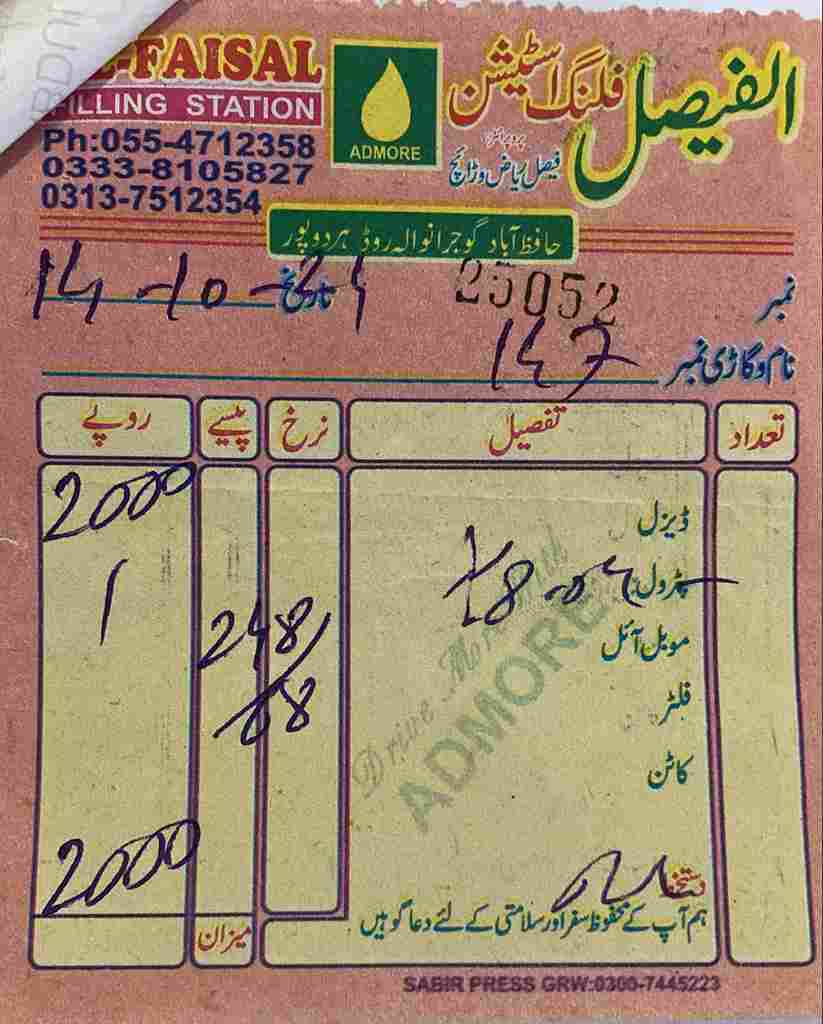 -FAISAL
FILLING STATION
Ph:055-4712358
0333-8105827
0313-7512354
ADMORE
الفیصل فلنگ اسٹیشن
پروپرائٹر
فیصل ریاض وڑائچ
حافظ آباد گوجرانوالہ روڈ ہردوپور
نمبر 25052 تاریخ 14-10-21
نام و گاڑی نمبر 147
تعداد تفصیل نرخ پیسے روپے
ڈیزل 2000
پٹرول
موبل آئل 248
فلٹر 68
کاٹن
Drive
ADMORE
2000
دستخط
ہم آپ کے محفوظ سفر اور سلامتی کے لئے دعا گو ہیں
میزان
SABIR PRESS GRW:0300-7445223